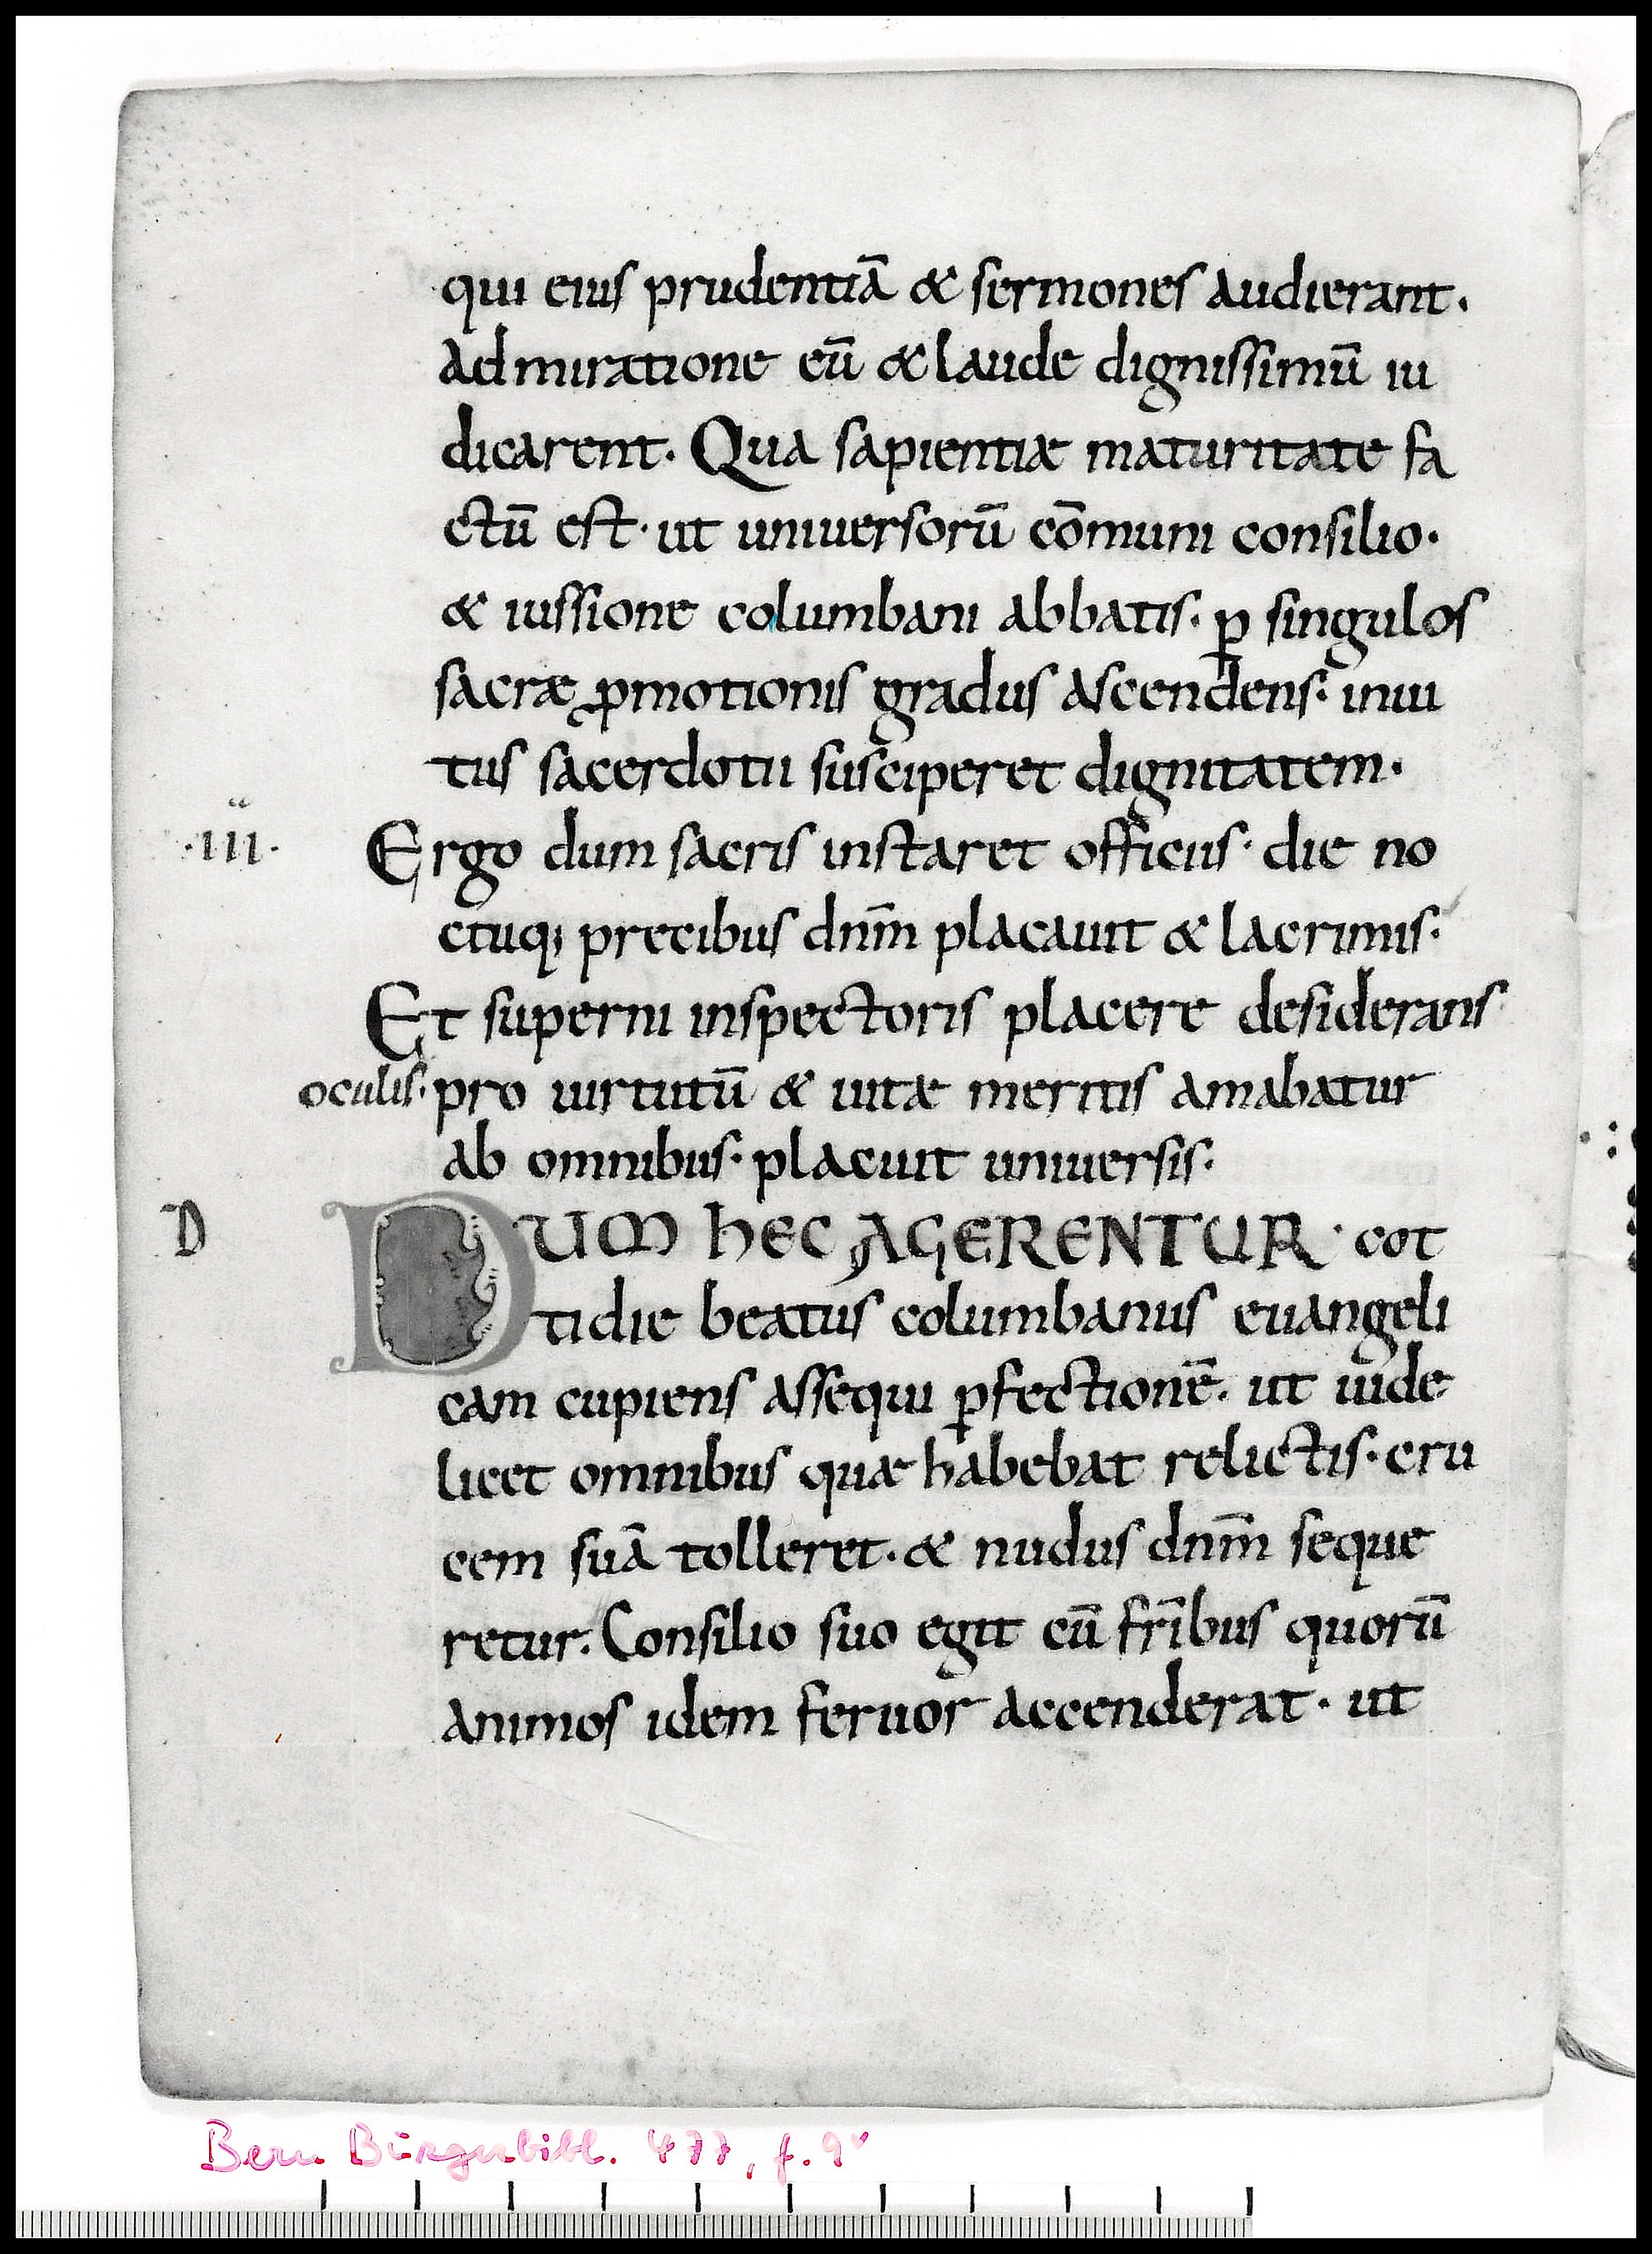 qui eius prudentiā & sermones audierant.
admiratione eū & laude dignissimū iu
dicarent. Qua sapientiæ maturitate fa
ctū est· ut uniuersorū cōmuni consilio·
& iussione columbani abbatis· ꝑ singulos
sacræ ꝓmotionis gradus ascendens· inui
tus sacerdotii susciperet dignitatem·
·III·
Ergo dum sacris instaret officiis· die no
ctuq; precibus dn̄m placauit & lacrimis·
Et superni inspectoris placere desiderans
oculis· pro uirtutū & uitæ meritis amabatur
ab omnibus· placuit uniuersis·
D
DUM HEC AGERENTUR· cot
tidie beatus columbanus euangeli
cam cupiens assequi ꝑfectionē· ut uide
licet omnibus quæ habebat relictis· cru
cem suā tolleret· & nudus dn̄m seque
retur. Consilio suo egit cū fr̄ibus quorū
animos idem feruor accenderat· ut
Bern Burgerbibl. 477, f. 9v